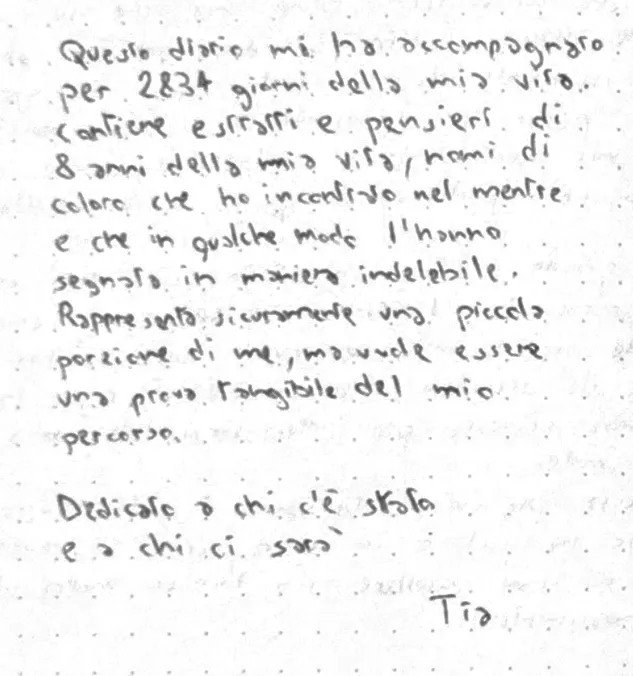 Questo diario mi ha accompagnato
per 2834 giorni della mia vita.
Contiene estratti e pensieri di
8 anni della mia vita, nomi di
coloro che ho incontrato nel mentre
e che in qualche modo l'hanno
segnata in maniera indelebile.
Rappresenta sicuramente una piccola
porzione di me, ma vuole essere
una prova tangibile del mio
percorso.
Dedicato a chi c'è stato
e a chi ci sarà
Tia